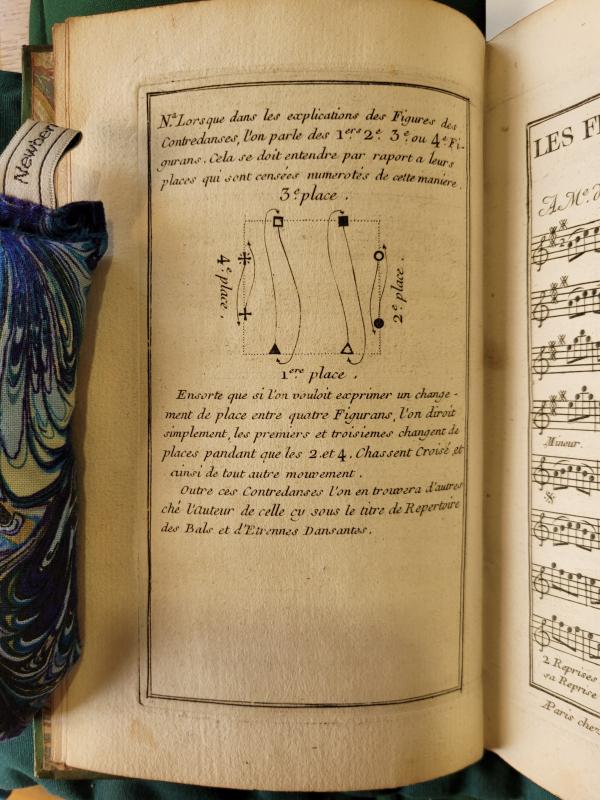 Newber
N.ª Lorsque dans les explications des Figures des
Contredanses, l'on parle des 1ers 2e. 3e. ou 4e. Fi-
gurans. Cela se doit entendre par raport a leurs
places qui sont censées numerotés de cette maniere.
3e place.
4e place.
2e place.
1ere place.
Ensorte que si l'on vouloit exprimer un change-
ment de place entre quatre Figurans, l'on diroit
simplement, les premiers et troisiemes changent de
places pandant que les 2. et 4. Chassent Croisé, et
ainsi de tout autre mouvement.
Outre ces Contredanses l'on en trouvera d'autres
ché l'Auteur de celle cy sous le titre de Repertoire
des Bals et d'Etrennes Dansantes.
LES F
A Me. d
Mineur.
2 Reprises
sa Reprise
Paris chez